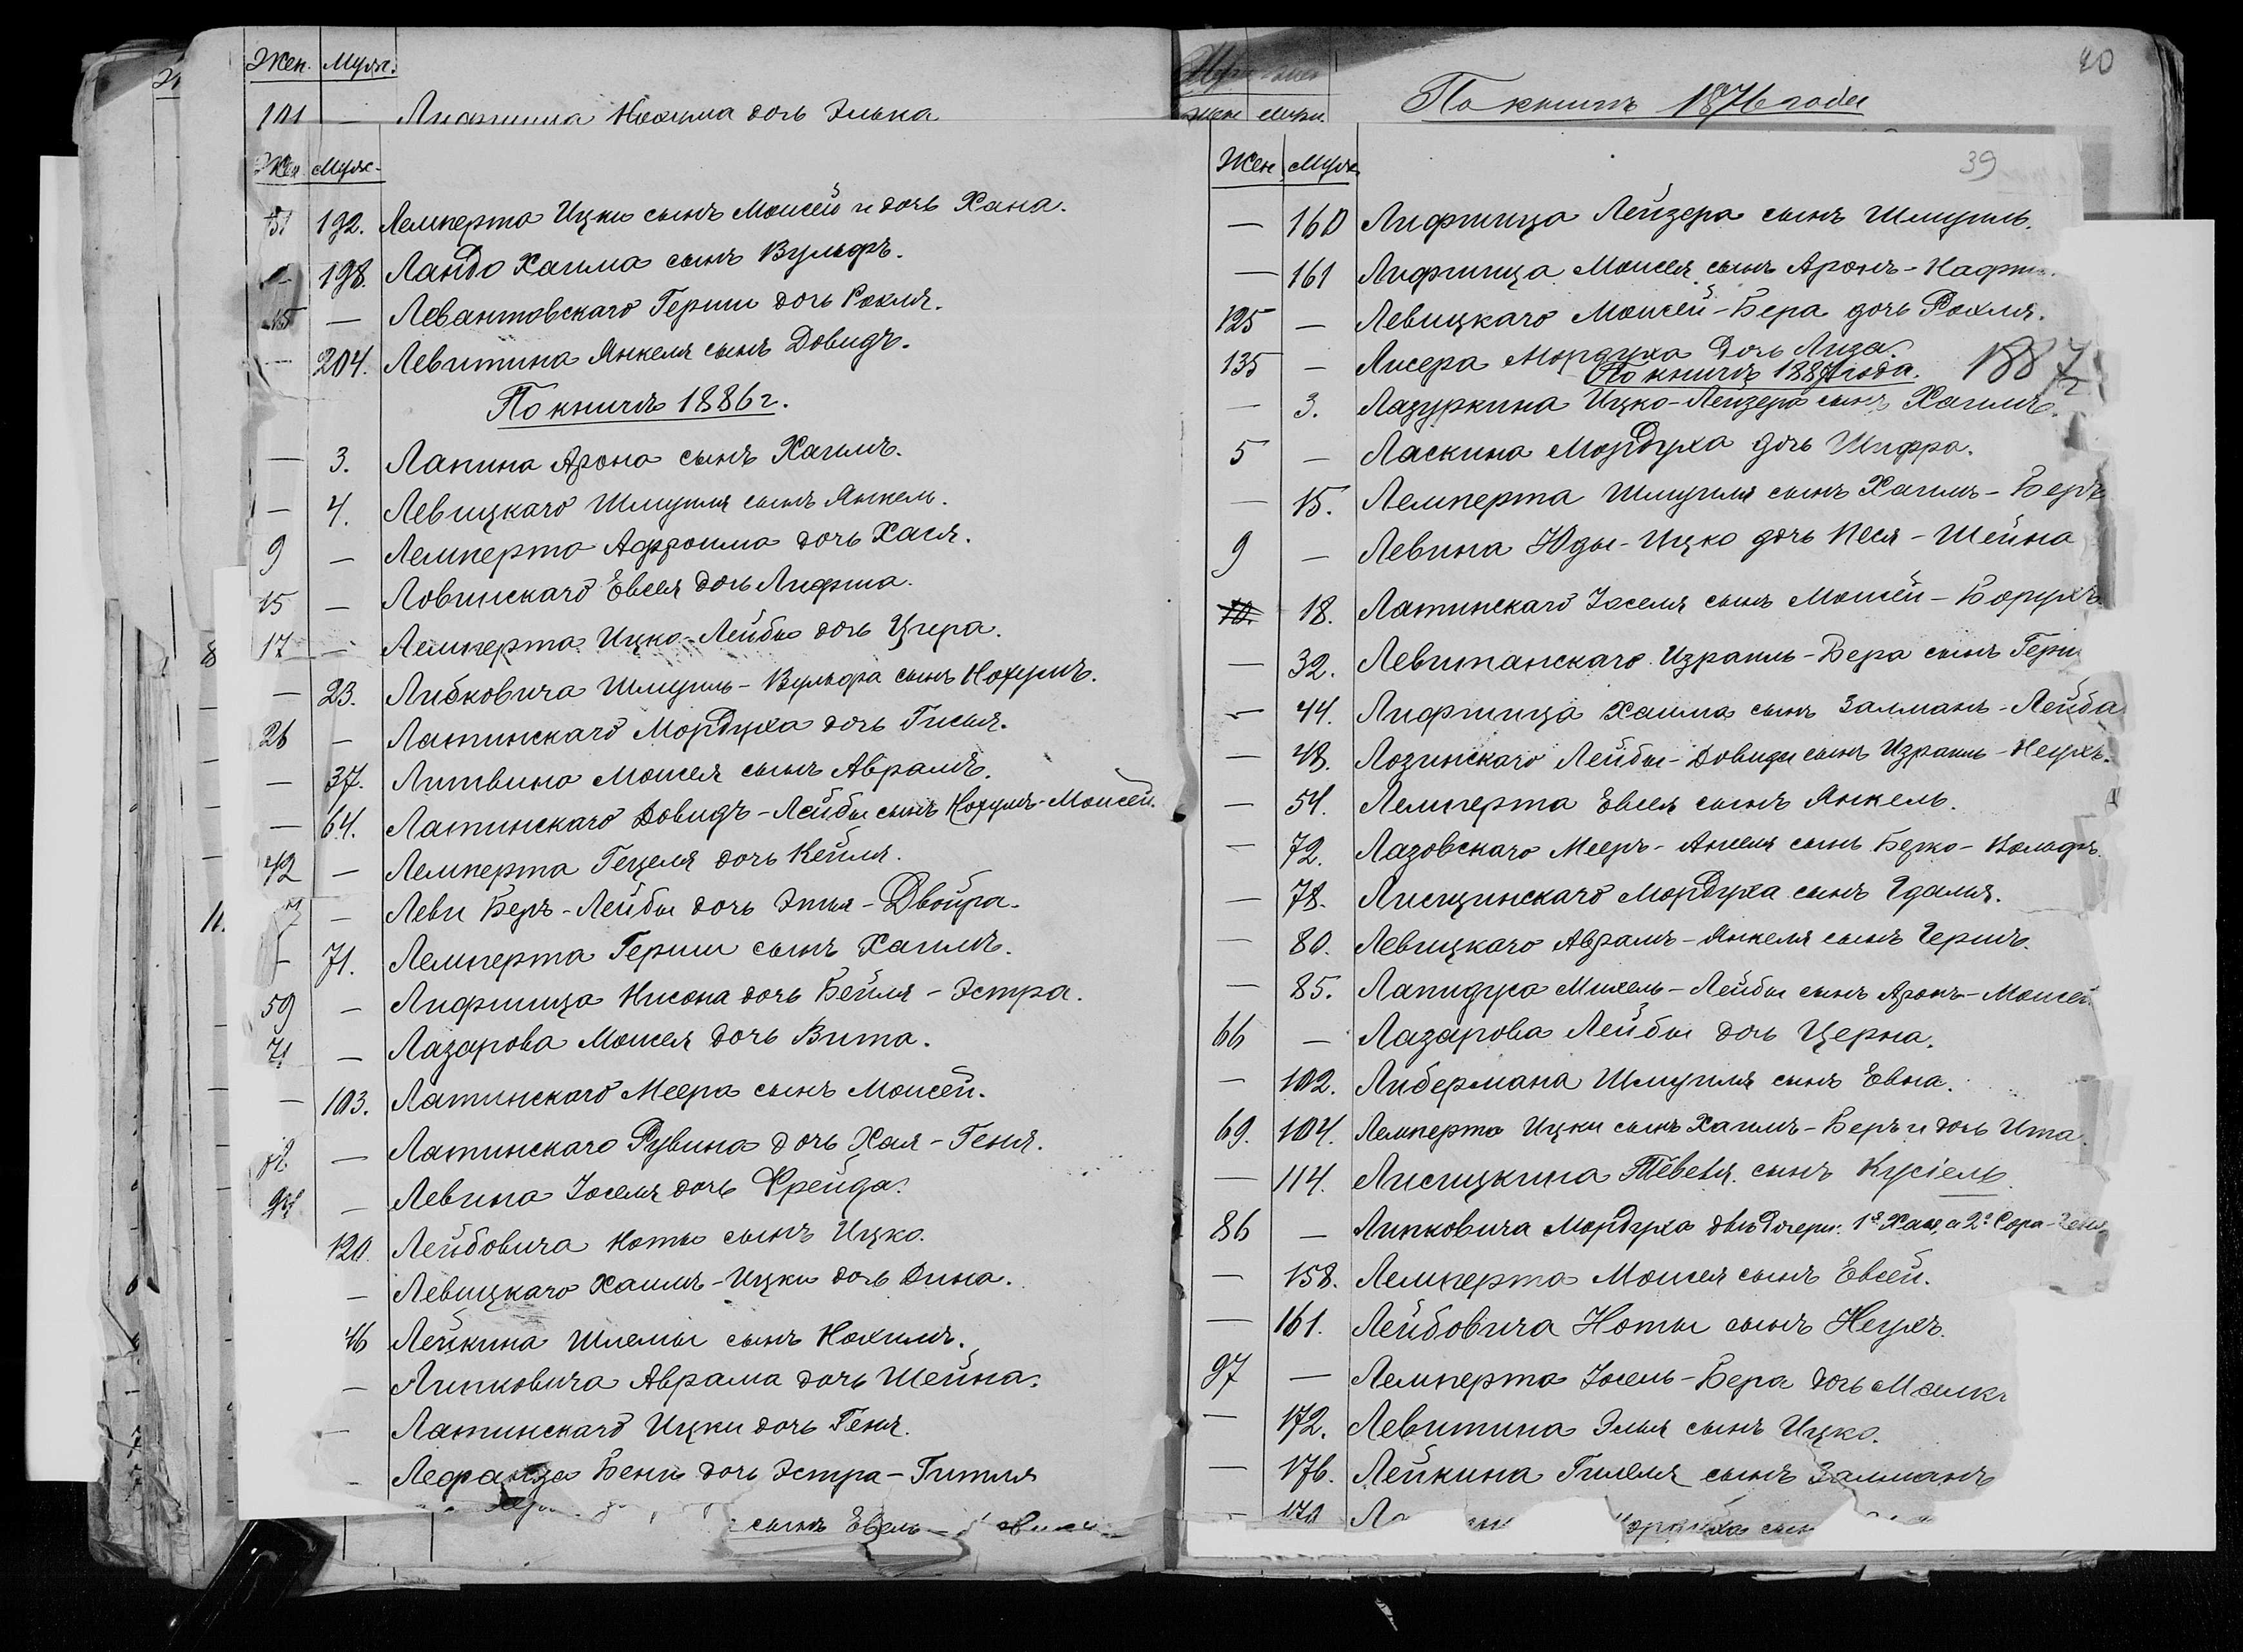 Жен. Муж.
101 — Лифшица Нохима дочь Элька
Жен. Муж.
51 192. Лемперта Ицки сынъ Моисей и дочь Хана.
198. Ландо Хаима сынъ Вульфъ.
— Левантовскаго Герши дочь Рохля.
— 204. Левитина Янкеля сынъ Довидъ.
По книгѣ 1886 г.
— 3. Лапина Арона сынъ Хаимъ.
— 4. Левицкаго Шмуиля сынъ Янкель.
9 — Лемперта Афроима дочь Хася.
15 — Ловинскаго Евсея дочь Лифша.
17 — Лемперта Ицко-Лейбы дочь Цира.
— 23. Либковича Шмуиль-Вульфа сынъ Нохумъ.
26 — Латинскаго Мордуха дочь Гисья.
— 37. Литвина Моисея сынъ Аврамъ.
— 64. Латинскаго Довидъ-Лейбы сынъ Нохумъ-Моисей.
42 — Лемперта Гецеля дочь Кейля.
— Леви Беръ-Лейбы дочь Этья-Двойра.
— 71. Лемперта Герши сынъ Хаимъ.
59 — Лифшица Нисона дочь Бейля-Эстра.
71 — Лазарова Моисея дочь Вита.
— 103. Латинскаго Меера сынъ Моисей.
— Латинскаго Рувина дочь Хая-Геня.
— Левина Іоселя дочь Фрейда.
120. Лейбовича Ноты сынъ Ицко.
— Левицкаго Хаимъ-Ицки дочь Дина.
46 Лейкина Шлемы сынъ Нохимъ.
— Липковича Аврама дочь Шейна.
— Латинскаго Ицки дочь Геня.
— Лефранца Бени дочь Эстра-Гитля
сынъ Евель
40
Жен Муж.
По книгѣ 1876 года
39
Жен. Муж.
— 160 Лифшица Лейзера сынъ Шмуиль.
— 161 Лифшица Моисея сынъ Аронъ-Нафт
125 — Левицкаго Моисей-Бера дочь Рохля.
135 — Лисера Мордуха дочь Лиза.
По книгѣ 1887 года. 1887
— 3. Лазуркина Ицко-Лейзера сынъ Хаимъ.
5 — Ласкина Мордуха дочь Шифра.
— 15. Лемперта Шмуиля сынъ Хаимъ-Беръ
9 — Левина Юды-Ицко дочь Песя-Шейна
10. 18. Латинскаго Іоселя сынъ Моисей-Борухъ
— 32. Левитанскаго Израиль-Бера сынъ Герш
— 44. Лифшица Хаима сынъ Залманъ-Лейба
— 48. Лозинскаго Лейбы-Довиды сынъ Израиль-Неухъ.
— 54. Лемперта Евсея сынъ Янкель.
— 72. Лазовскаго Мееръ-Анселя сынъ Берко-Вольфъ.
— 78. Лисицинскаго Мордуха сынъ Гдалія.
— 80. Левицкаго Аврамъ-Янкеля сынъ Гершъ.
— 85. Лапидуса Михель-Лейбы сынъ Аронъ-Моисей
66 — Лазарова Лейбы дочь Церна.
— 102. Либермана Шмуиля сынъ Евна.
69. 104. Лемперта Ицки сынъ Хаимъ-Беръ и дочь Ита.
— 114. Лисицкина Тевеля сынъ Кусіель.
86 — Липковича Мордуха двѣ дочери: 1я Хая, а 2я Сора-Геня
— 158. Лемперта Моисея сынъ Евсей.
— 161. Лейбовича Ноты сынъ Неухъ.
97 — Лемперта Іосель-Бера дочь Малк
— 172. Левитина Элья сынъ Ицко.
— 176. Лейкина Гилеля сынъ Залманъ